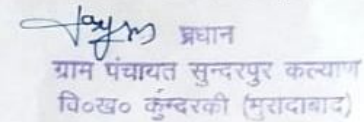 प्रधान
ग्राम पंचायत सुन्दरपुर कल्याण
वि०ख० कुन्दरकी (मुरादाबाद)